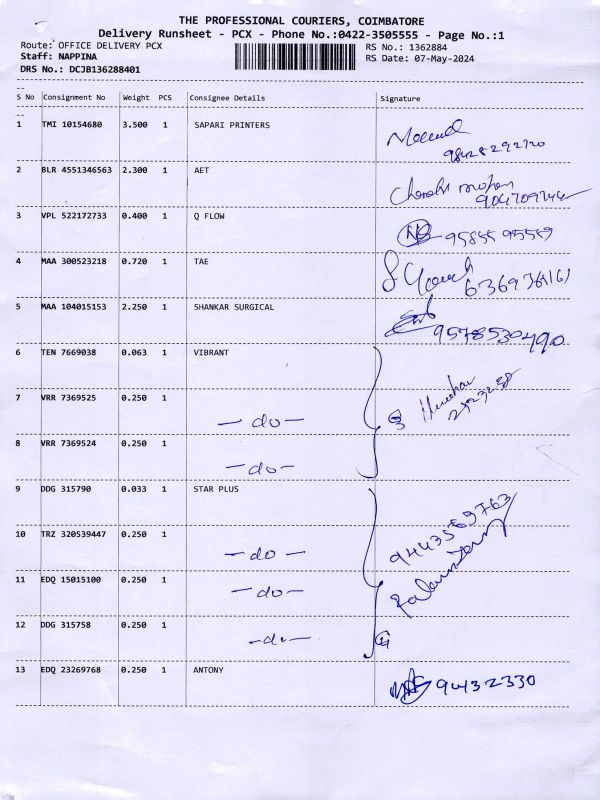 THE PROFESSIONAL COURIERS, COIMBATORE
Delivery Runsheet - PCX - Phone No.:0422-3505555 - Page No.:1
Route: OFFICE DELIVERY PCX RS No.: 1362884
Staff: NAPPINA RS Date: 07-May-2024
DRS No.: DCJB136288401
S No Consignment No Weight PCS Consignee Details Signature
1 TMI 10154680 3.500 1 SAPARI PRINTERS
2 BLR 4551346563 2.300 1 AET
3 VPL 522172733 0.400 1 Q FLOW
9585595559
4 MAA 300523218 0.720 1 TAE
5 MAA 104015153 2.250 1 SHANKAR SURGICAL
9578530490
6 TEN 7669038 0.063 1 VIBRANT
7 VRR 7369525 0.250 1
- do -
8 VRR 7369524 0.250 1
- do -
9 DDG 315790 0.033 1 STAR PLUS
9443569763
10 TRZ 320539447 0.250 1
- do -
11 EDQ 15015100 0.250 1
- do -
12 DDG 315758 0.250 1
- do -
13 EDQ 23269768 0.250 1 ANTONY
9432330